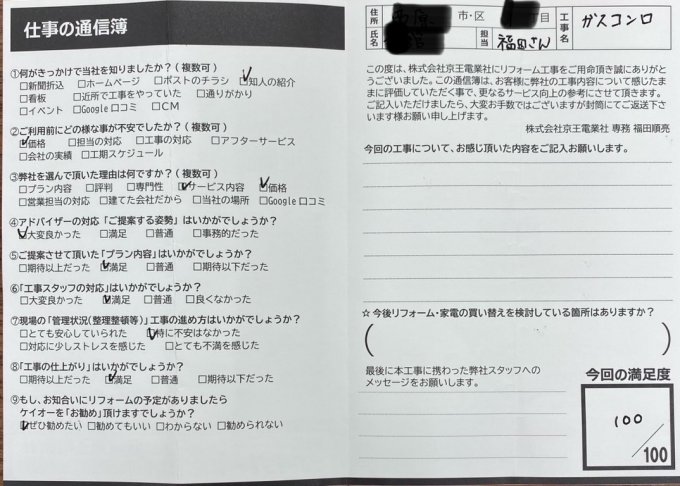 仕事の通信簿
①何がきっかけで当社を知りましたか？(複数可)
□新聞折込 □ホームページ □ポストのチラシ ☑知人の紹介
□看板 □近所で工事をやっていた □通りがかり
□イベント □Google口コミ □CM
②ご利用前にどの様な事が不安でしたか？(複数可)
☑価格 □担当の対応 □工事の対応 □アフターサービス
□会社の実績 □工期スケジュール
③弊社を選んで頂いた理由は何ですか？(複数可)
□プラン内容 □評判 □専門性 ☑サービス内容 ☑価格
□営業担当の対応 □建てた会社だから □当社の場所 □Google口コミ
④アドバイザーの対応「ご提案する姿勢」はいかがでしょうか？
☑大変良かった □満足 □普通 □事務的だった
⑤ご提案させて頂いた「プラン内容」はいかがでしょうか？
□期待以上だった ☑満足 □普通 □期待以下だった
⑥「工事スタッフの対応」はいかがでしょうか？
□大変良かった ☑満足 □普通 □良くなかった
⑦現場の「管理状況(整理整頓等)」工事の進め方はいかがでしょうか？
□とても安心していられた ☑特に不安はなかった
□対応に少しストレスを感じた □とても不満を感じた
⑧「工事の仕上がり」はいかがでしょうか？
□期待以上だった ☑満足 □普通 □期待以下だった
⑨もし、お知合いにリフォームの予定がありましたら
ケイオーを「お勧め」頂けますでしょうか？
☑ぜひ勧めたい □勧めてもいい □わからない □勧められない
住所 市・区 丁目
氏名 担当 福田さん
工事名 ガスコンロ
この度は、株式会社京王電業社にリフォーム工事をご用命頂き誠にありがと
うございました。この通信簿は、お客様に弊社の工事内容について感じたま
まに評価していただく事で、更なるサービス向上の参考にさせて頂きます。
ご記入いただけましたら、大変お手数ではございますが封筒にてご返送下さ
います様お願い申し上げます。
株式会社京王電業社 専務 福田順亮
今回の工事について、お感じ頂いた内容をご記入お願いします。
☆今後リフォーム・家電の買い替えを検討している箇所はありますか？
( )
最後に本工事に携わった弊社スタッフへの
メッセージをお願いします。
今回の満足度
100
/100